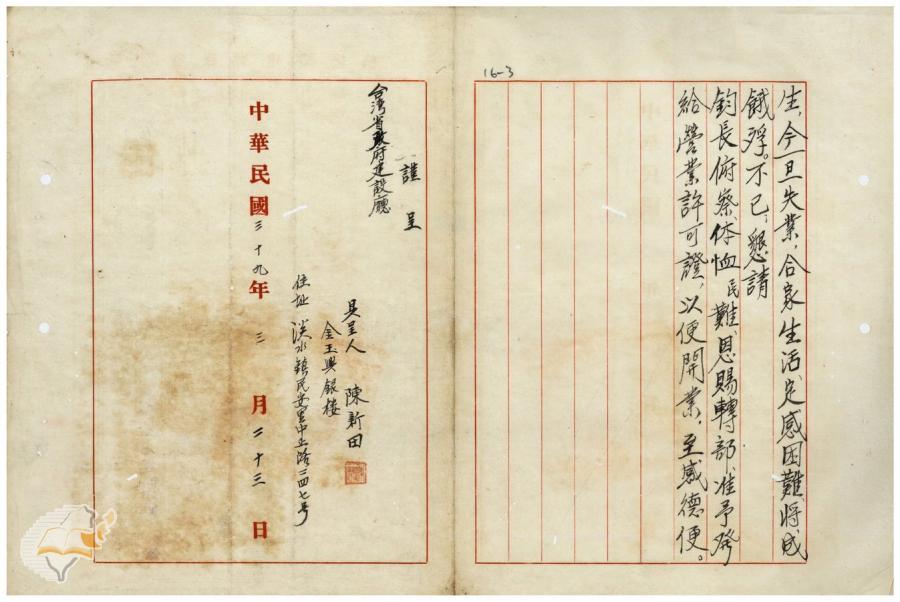 16-3
生、今一旦失業、合家生活定感困難、將成
餓殍。不已、懇請
鈞長俯察体恤民難、恩賜轉部准予發
給營業許可證、以便開業、至感德便。
謹呈
台湾省政府建設廳
具呈人 陳新田
金玉興銀楼
住址 淡水鎮民安里中正路一四七号
中華民國三十九年三月二十三日